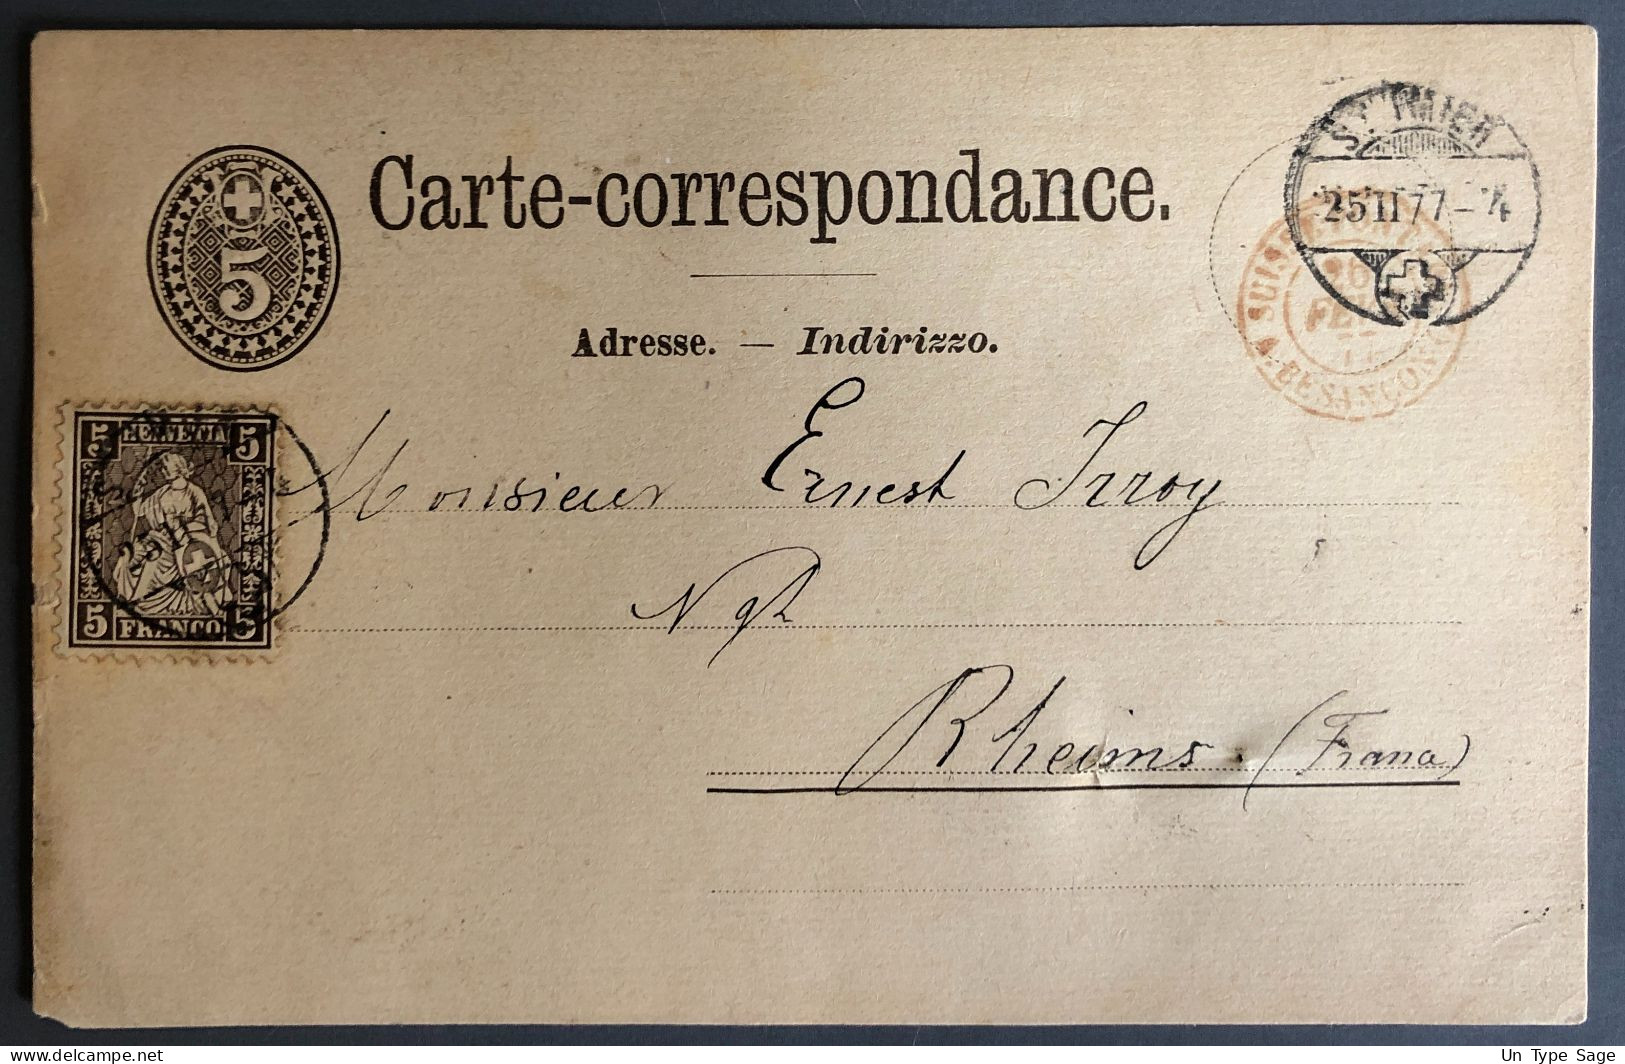 Carte-correspondance.
5
Adresse. — Indirizzo.
ST IMIER
25 II 77 - 4
SUISSE
26
FEVR
BESANCON
5 HELVETIA 5
25 II
5 FRANCO 5
Monsieur Ernest Irroy
Ngt
Rheims. (France)
Un Type Sage
delcampe.net